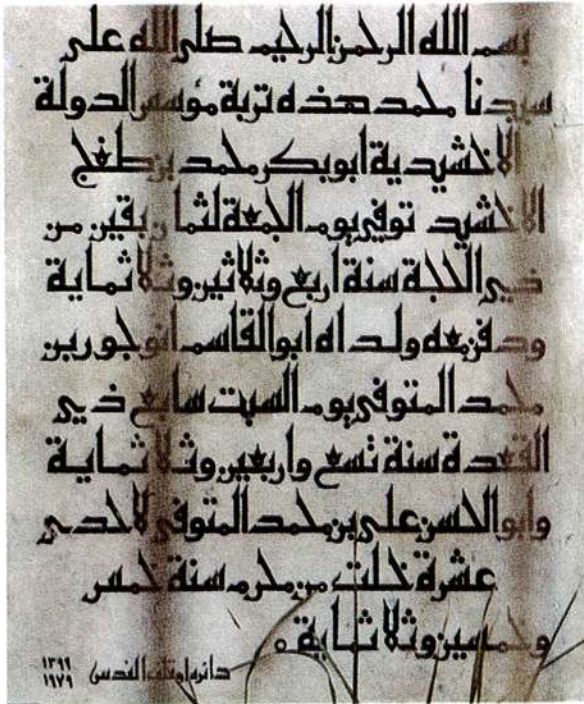 بسم الله الرحمن الرحيم صلى الله على
سيدنا محمد هذه تربة مؤسس الدولة
الاخشيدية ابو بكر محمد بن طغج
الاخشيد توفي يوم الجمعة لثمان بقين من
ذي الحجة سنة اربع وثلاثين وثلاثماية
ودفن معه ولداه ابو القاسم انوجور بن
محمد المتوفى يوم السبت سابع ذي
القعدة سنة تسع واربعين وثلاثماية
وابو الحسن علي بن محمد المتوفى لاحدى
عشرة خلت من محرم سنة خمس
وخمسين وثلاثماية
دائرة اوقاف القدس ١٣٩٩
١٩٧٩